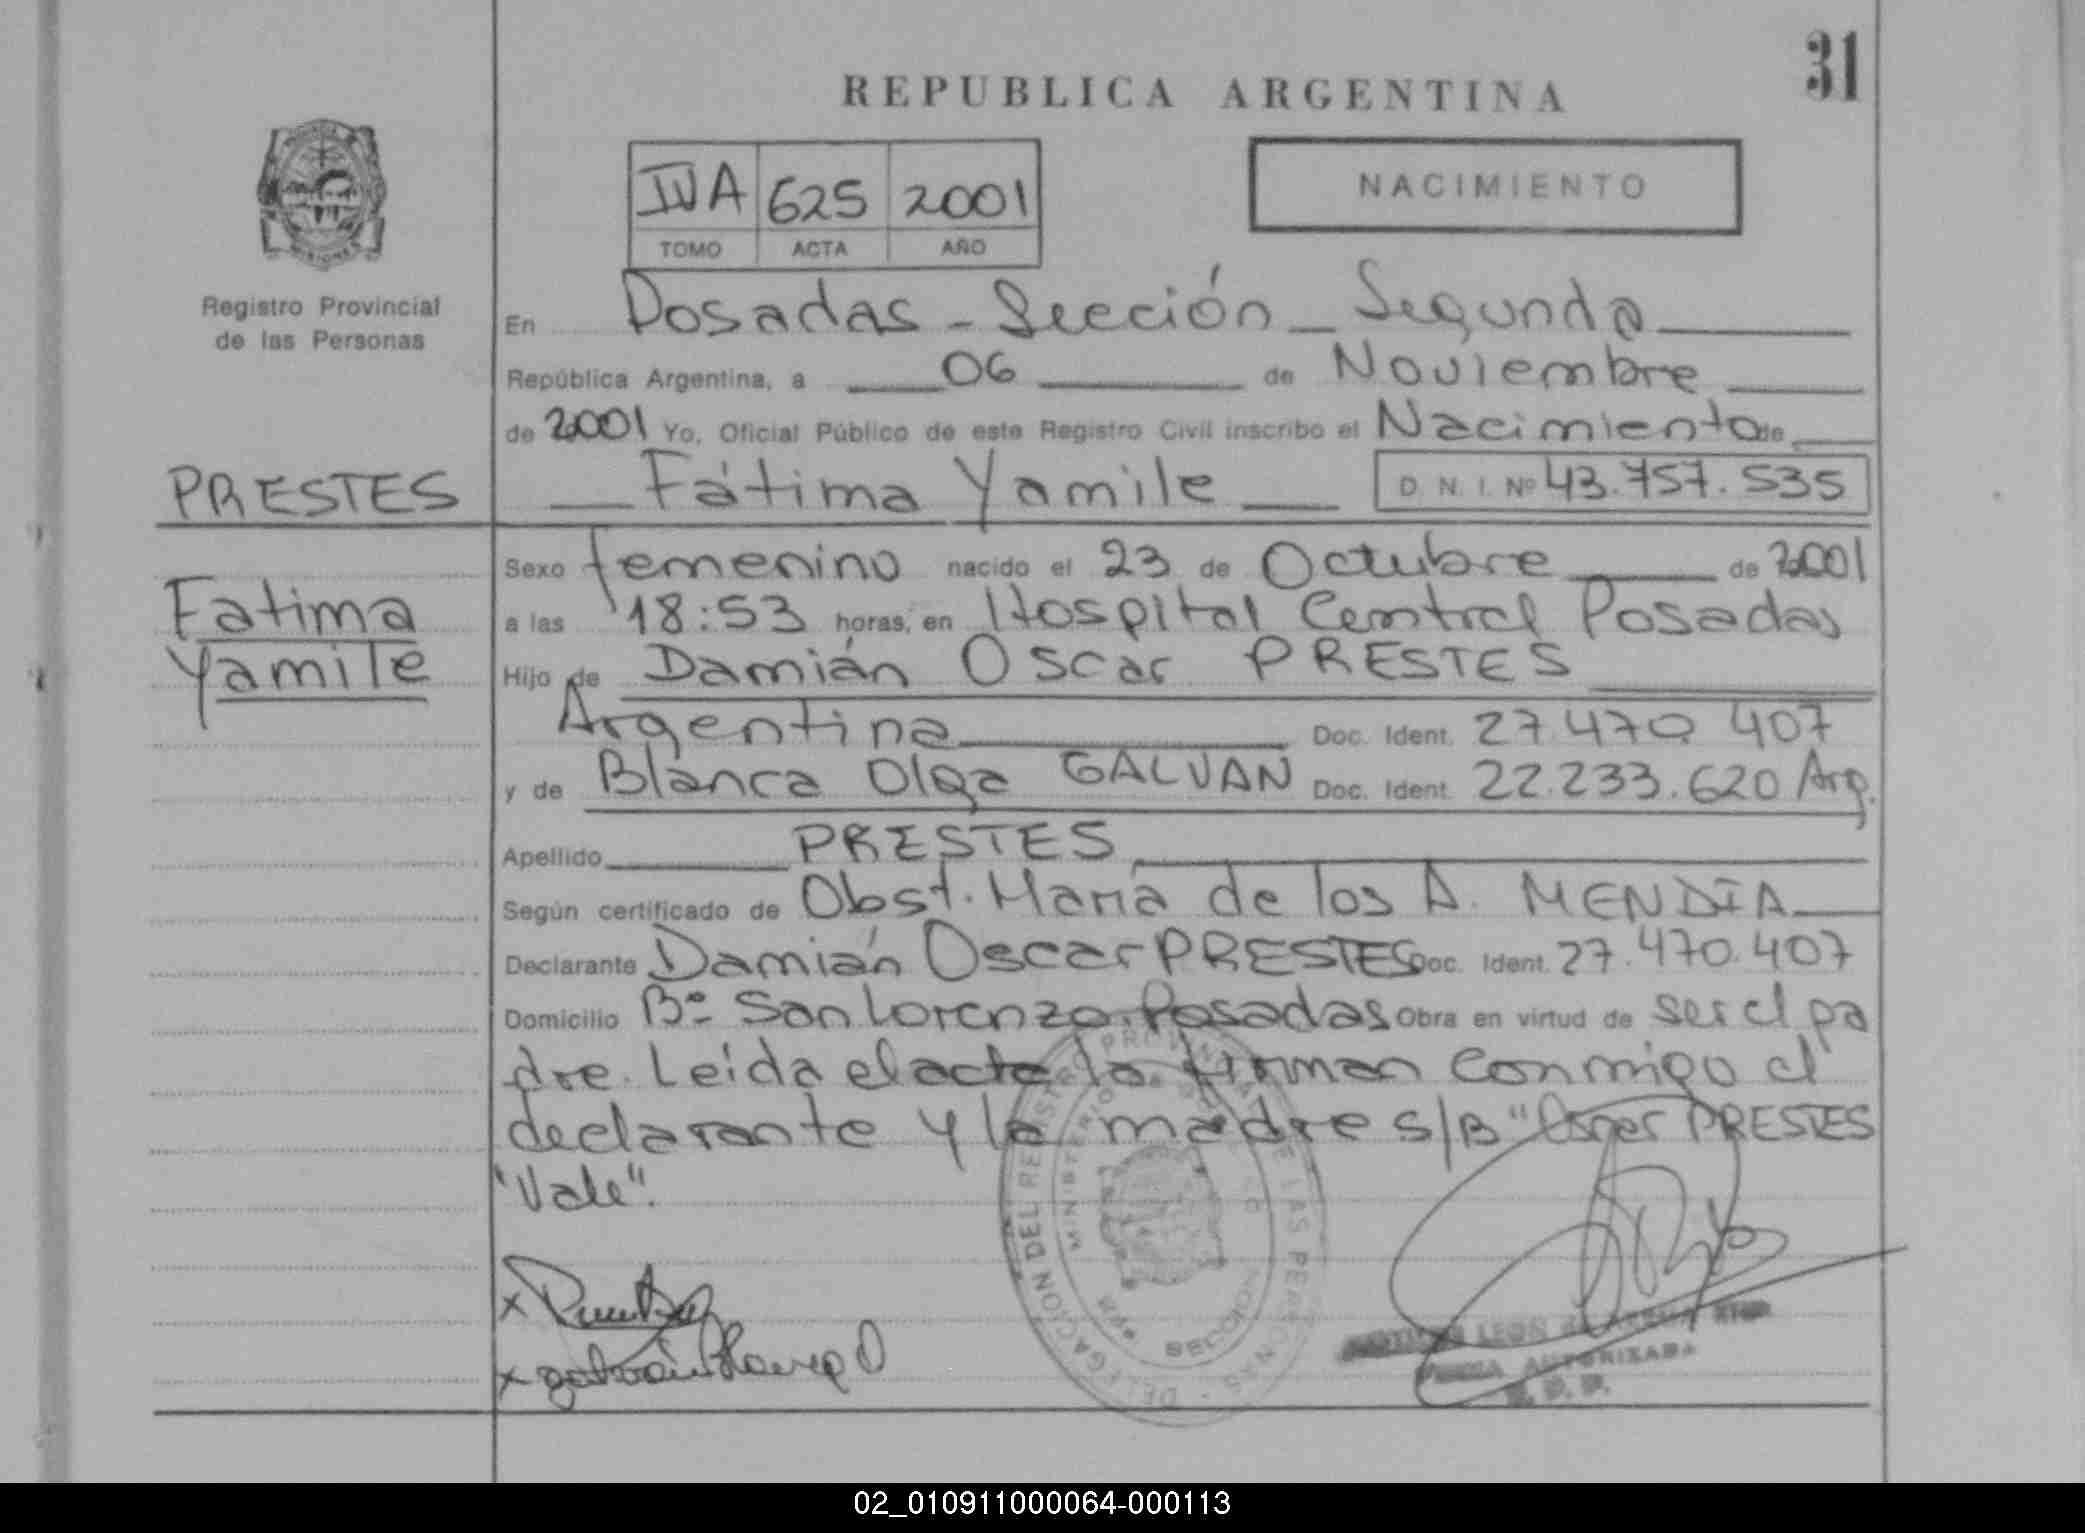 31
REPUBLICA ARGENTINA
IVA 625 2001
TOMO ACTA AÑO
NACIMIENTO
MISIONES
Registro Provincial
de las Personas
En Posadas - Sección Segunda
República Argentina, a 06 de Noviembre
de 2001 Yo, Oficial Público de este Registro Civil inscribo el Nacimiento de
PRESTES
Fátima Yamile D. N. I. Nº 43.757.535
Fatima
Yamile
Sexo femenino nacido el 23 de Octubre de 2001
a las 18:53 horas, en Hospital Central Posadas
Hijo de Damián Oscar PRESTES
Argentina Doc. Ident. 27.470.407
y de Blanca Olga GALVAN Doc. Ident. 22.233.620 Arg.
Apellido PRESTES
Según certificado de Obst. María de los A. MENDIA
Declarante Damián Oscar PRESTES Doc. Ident. 27.470.407
Domicilio Bº San Lorenzo. Posadas Obra en virtud de ser el pa
dre. Leida el acta la firman conmigo el
declarante y la madre s/B "Oscar PRESTES
"Vale".
x
x Galván Blanca O
DELEGACION DEL REGISTRO PROVINCIAL DE LAS PERSONAS
MINISTERIO DE GOBIERNO
SECCION
LEON
FIRMA AUTORIZADA
R. P. P.
02_010911000064-000113